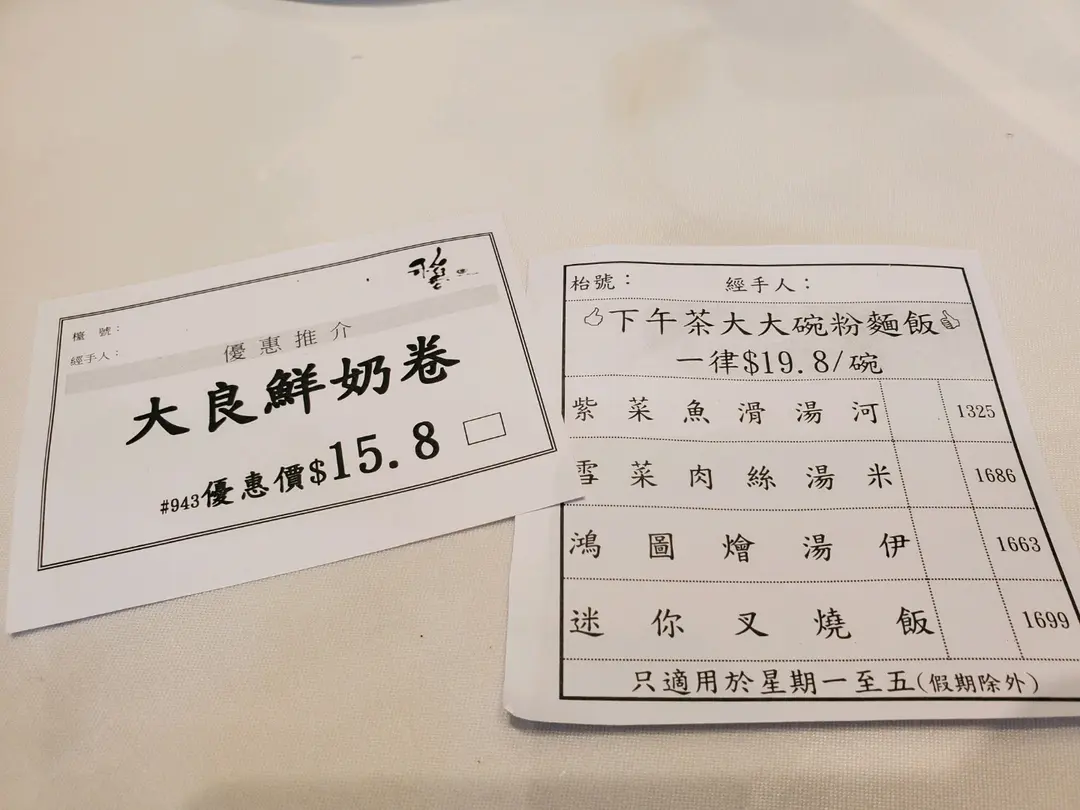 檯 號：
經手人：
優惠推介
大良鮮奶卷
#943優惠價$15.8
枱號： 經手人：
下午茶大大碗粉麵飯
一律$19.8/碗
紫菜魚滑湯河 1325
雪菜肉絲湯米 1686
鴻圖燴湯伊 1663
迷你叉燒飯 1699
只適用於星期一至五(假期除外)